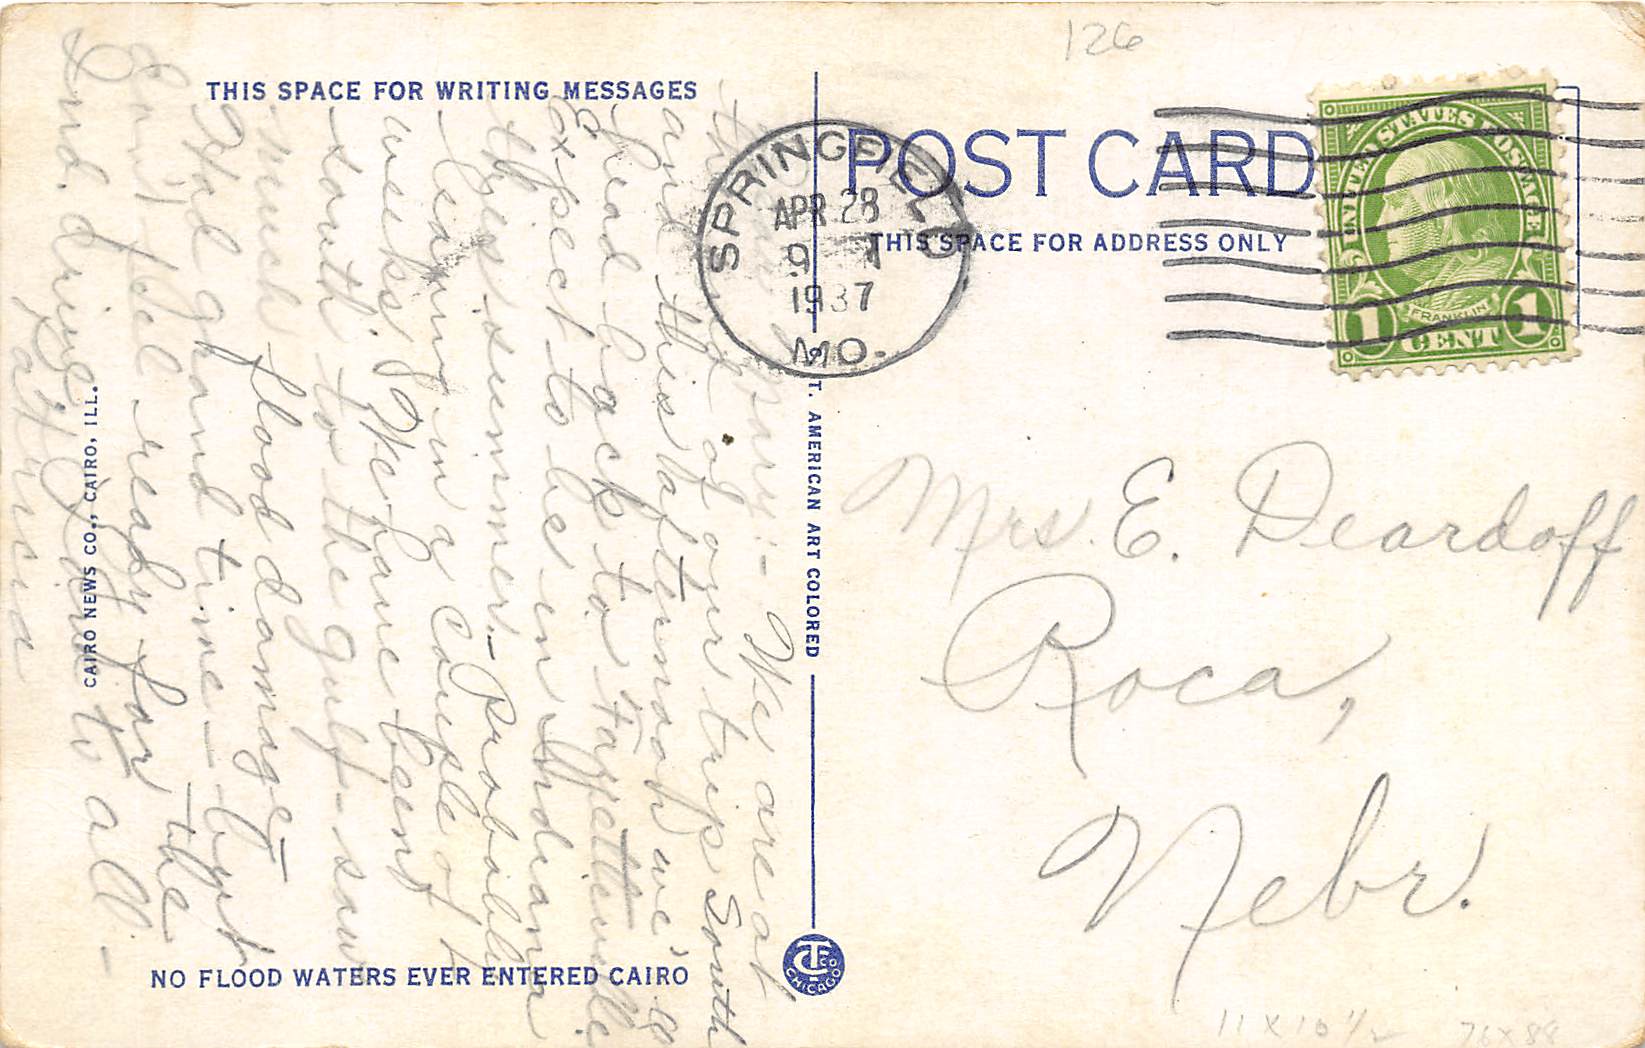 126
THIS SPACE FOR WRITING MESSAGES
POST CARD
THIS SPACE FOR ADDRESS ONLY
SPRINGFIELD
APR 28
1937
MO.
UNITED STATES POSTAGE
FRANKLIN
1 CENT 1
:- We are at
the end of our trip South
and this afternoon we'll
head back to Fayetteville
Expect to be in Indiana
this summer. - Probably
leaving in a couple of
weeks. We have been
south to the gulf - saw
much flood damage
Had grand time - but
feel ready for the
Ind. drive. Love to all -
Mrs. E. Deardoff
Roca,
Nebr.
CAIRO NEWS CO., CAIRO, ILL.
C.T. AMERICAN ART COLORED
NO FLOOD WATERS EVER ENTERED CAIRO
CT CO CHICAGO
11 X 10 1/2
76 X 88